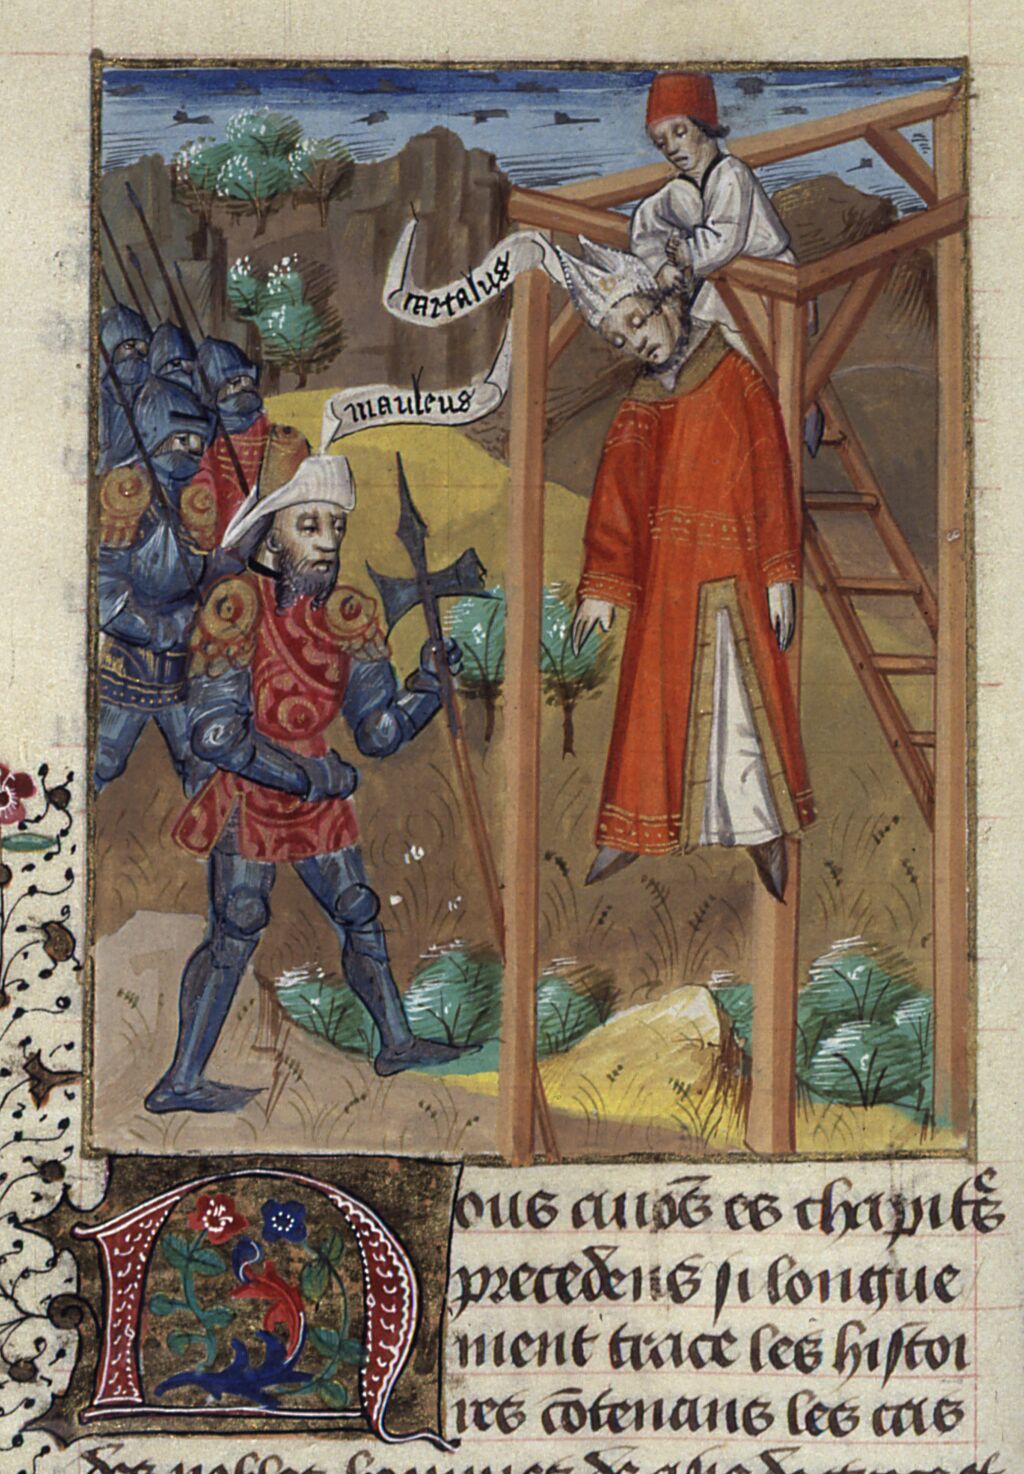 cartalus
mauleus
Nous auōs es chapitᵉs
precedens si longue
ment trace les histoi
res cōtenans les cas
des nobles hommes